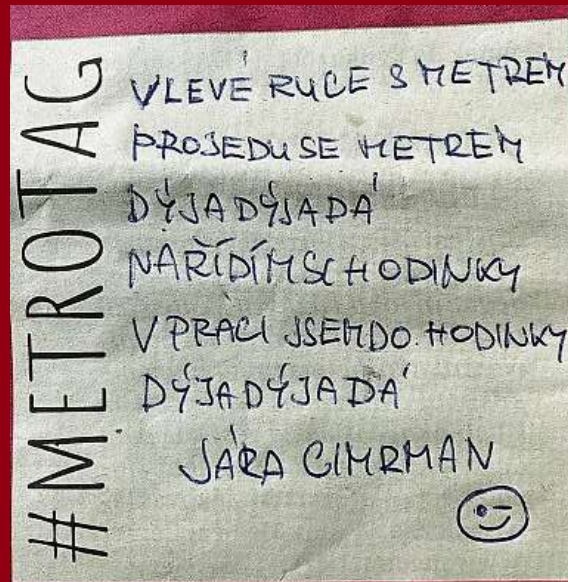 #METROTAG
VLEVÉ RUCE S METREM
PROJEDU SE METREM
DÝJADÝJADÁ
NAŘÍDÍMSCHODINKY
V PRACI JSEMDO HODINKY
DÝJADÝJADÁ
JÁRA CIMRMAN